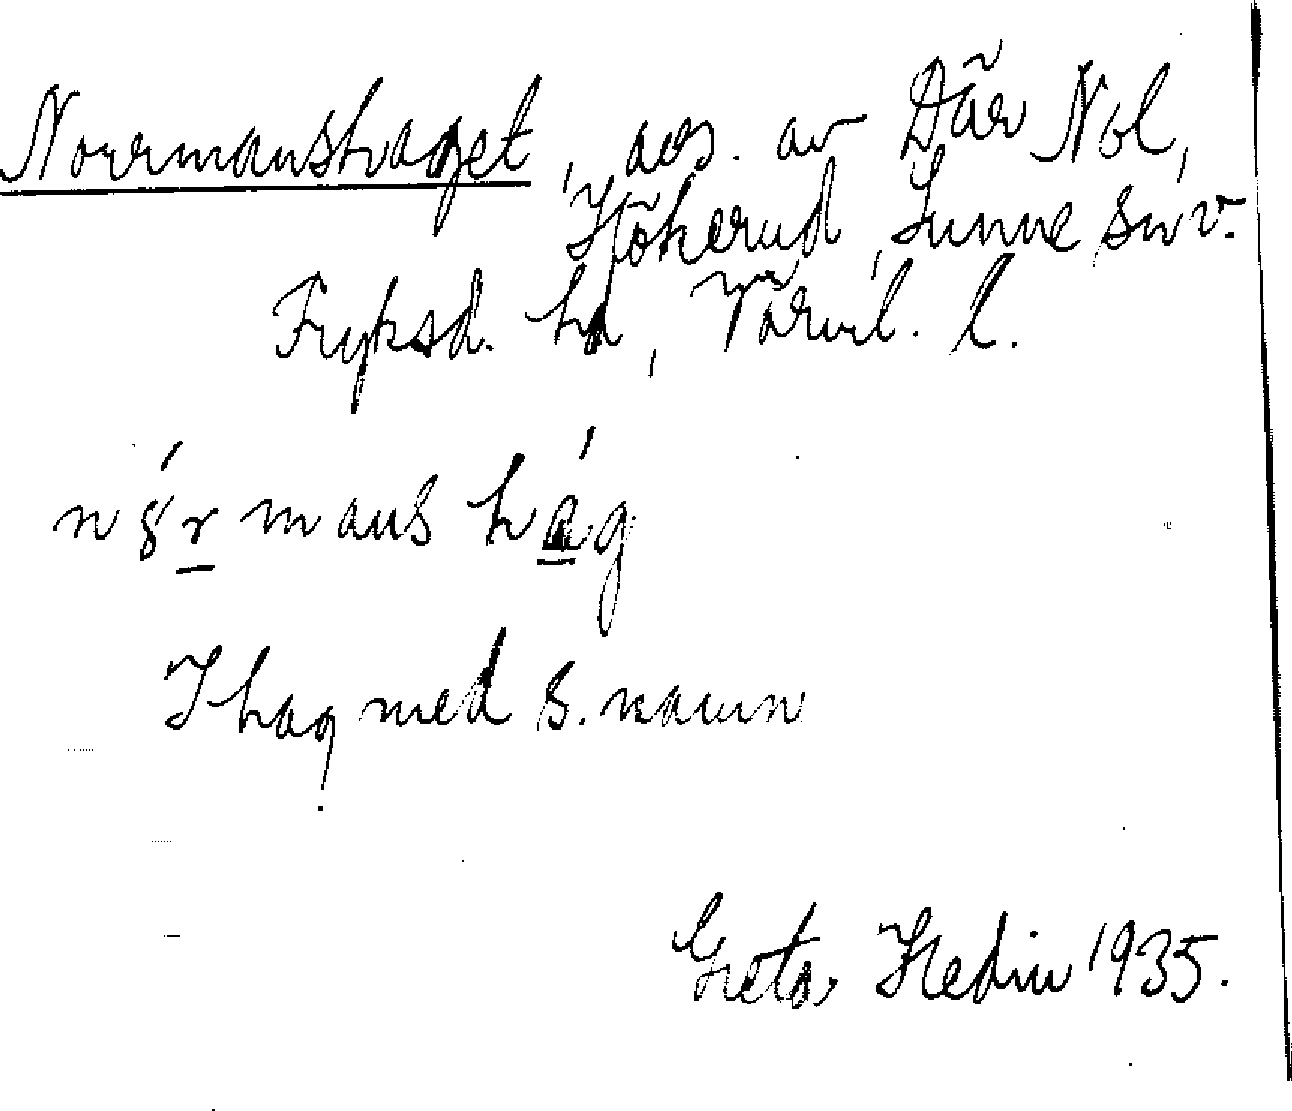 Norrmanshaget, äos. av Där Nol,
Hökerud, Sunne sn v.
Fryksd. hd, Värml. l.
nǿr mans hág
I hag med s. namn
Greta Hedin 1935.